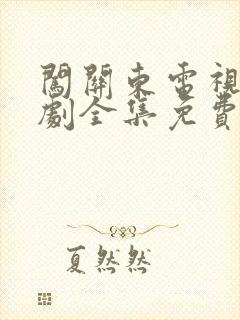 闖關東電視
劇全集免費
夏然然